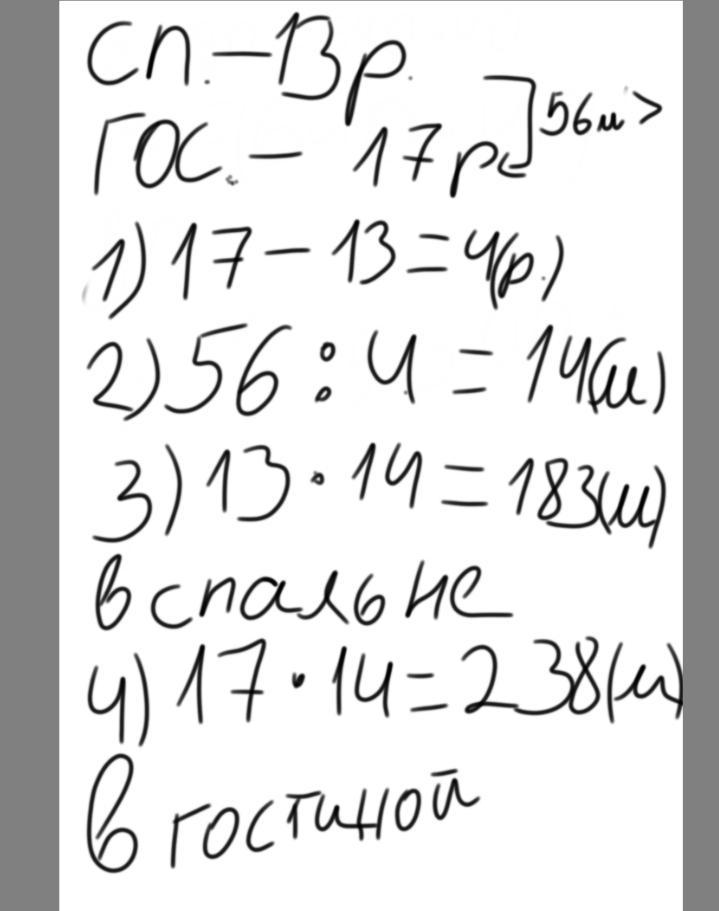 сп.-13р.
гос.- 17р.
56м>
1) 17-13=4(р.)
2) 56:4=14(м)
3) 13·14=183(м)
в спальне
4) 17·14=238(м)
в гостиной